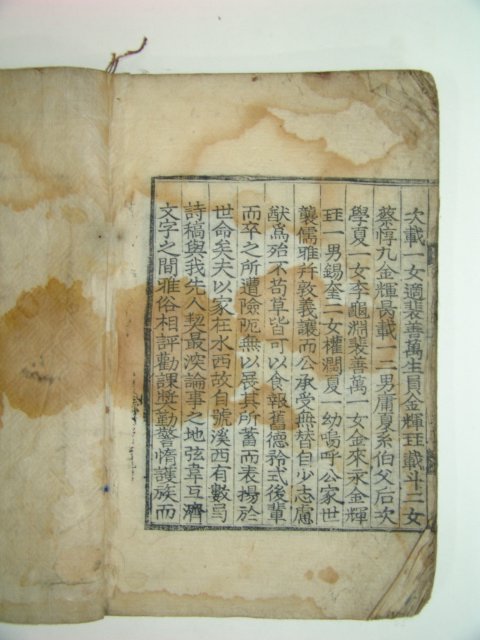 次載一女適裴善萬生員金輝玨載斗二女
蔡惇九金輝昺載一二男庸夏系伯父后次
學夏一女李龜淵裴善萬一女金來永金輝
玨一男錫奎二女權濶夏一幼嗚呼公家世
襲儒雅幷敦義讓而公承受無替自少志慮
猷爲殆不苟草皆可以食報舊德矜式後輩
而卒之所遭險阨無以展其所蓄而表揚於
世命矣夫以家在水西故自號溪西有數弓
詩稿與我先人契最深論事之地弦韋互濟
文字之間雅俗相評勸課奬勤警惰護族而